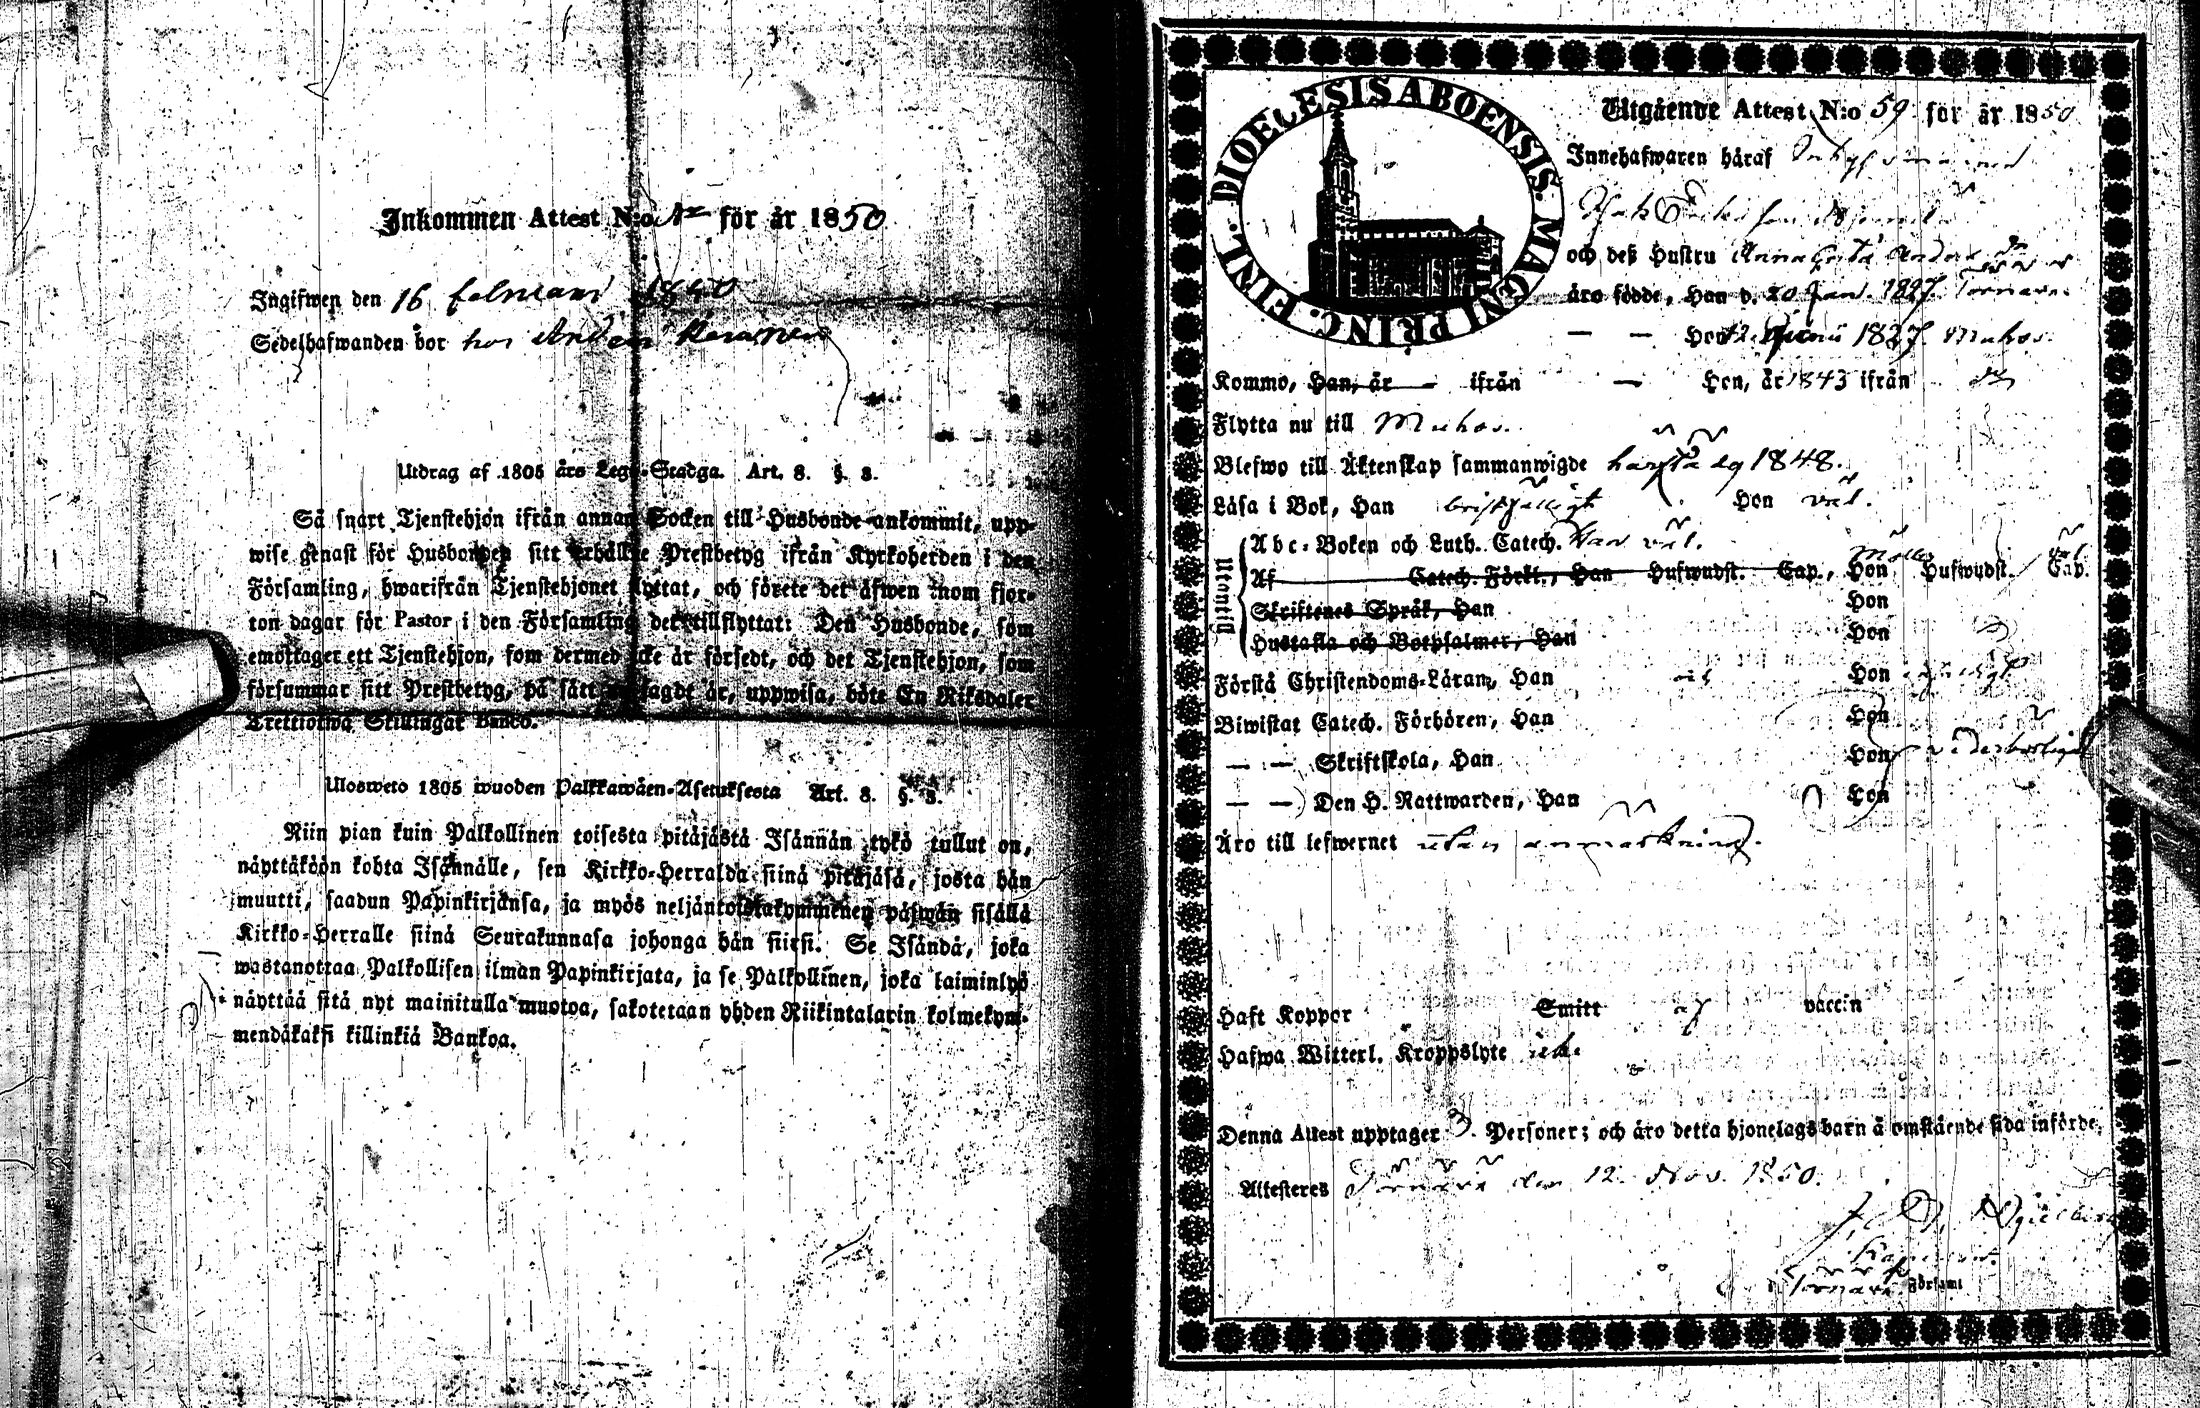 Inkommen Attest N:o för år 1850
Ingifwen den 16 februari
Sedelhafwanden bor hos
Utdrag af 1805 års Lego-Stadga. Art. 8. §. 3.
Så snart Tjenstehjon ifrån annan Socken till Husbonde ankommit, upp-
wise genast för Husbonden sitt erhållne Prestbetyg ifrån Kyrkoherden i den
Församling, hwarifrån Tjenstehjonet flyttat, och förete det äfwen inom fjor-
ton dagar för Pastor i den Församling det tillflyttat: Den Husbonde, som
emottager ett Tjenstehjon, som dermed icke är försedt, och det Tjenstehjon, som
försummar sitt Prestbetyg, på sätt sagdt är, uppwisa, böte En Riksdaler
Trettiotwå Skillingar Banco.
Ulosweto 1805 wuoden Palkkawäen-Asetuksesta Art. 8. §. 3.
Niin pian kuin Palkollinen toisesta pitäjästä Isännän tykö tullut on,
näyttäköön kohta Isännälle, sen Kirkko-Herralda siinä pitäjäsä, josta hän
muutti, saadun Papinkirjänsa, ja myös neljäntoistakymmenen päiwän sisällä
Kirkko-Herralle siinä Seurakunnasa johonga hän siirsi. Se Isändä, joka
wastanottaa Palkollisen ilman Papinkirjata, ja se Palkollinen, joka laiminlyö
näyttää sitä nyt mainitulla muotoa, sakotetaan yhden Riikintalarin kolmekym-
mendäkaksi killinkiä Bankoa.
DIOECESIS ABOENSIS. MAGNI PRINC. FINL.
Utgående Attest N:o 59 för år 1850
Innehafwaren häraf
och deß Hustru Anna Greta Anders dr
äro födde, Han d. 20 Jan. 1827.
— — Hon 12 Junii 1827. Muhos.
Kommo, Han, år — ifrån — Hon, år 1843 ifrån
Flytta nu till Muhos.
Blefwo till Äktenskap sammanwigde härstädes 1848.
Läsa i Bok, Han bristfälligt. Hon väl.
Utantill
Abc-Boken och Luth. Catech. Han väl.
Af Catech. Förkl., Han Hufwudst. Cap., Hon Hufwudst. Cap.
Skriftenes Språk, Han Hon
Hustafla och Botpsalmer, Han Hon
Förstå Christendoms-Läran, Han Hon
Biwistat Catech. Förhören, Han Hon
— — Skriftskola, Han Hon vederbörligen
— — Den H. Nattwarden, Han Hon
Äro till lefwernet utan anmärkning.
Haft Koppor Smitt af vaccin
Hafwa Witterl. Kroppslyte icke
Denna Attest upptager 3. Personer; och äro detta hjonelags barn å omstående sida införde.
Attesteres den 12. Nov. 1850.
Församl